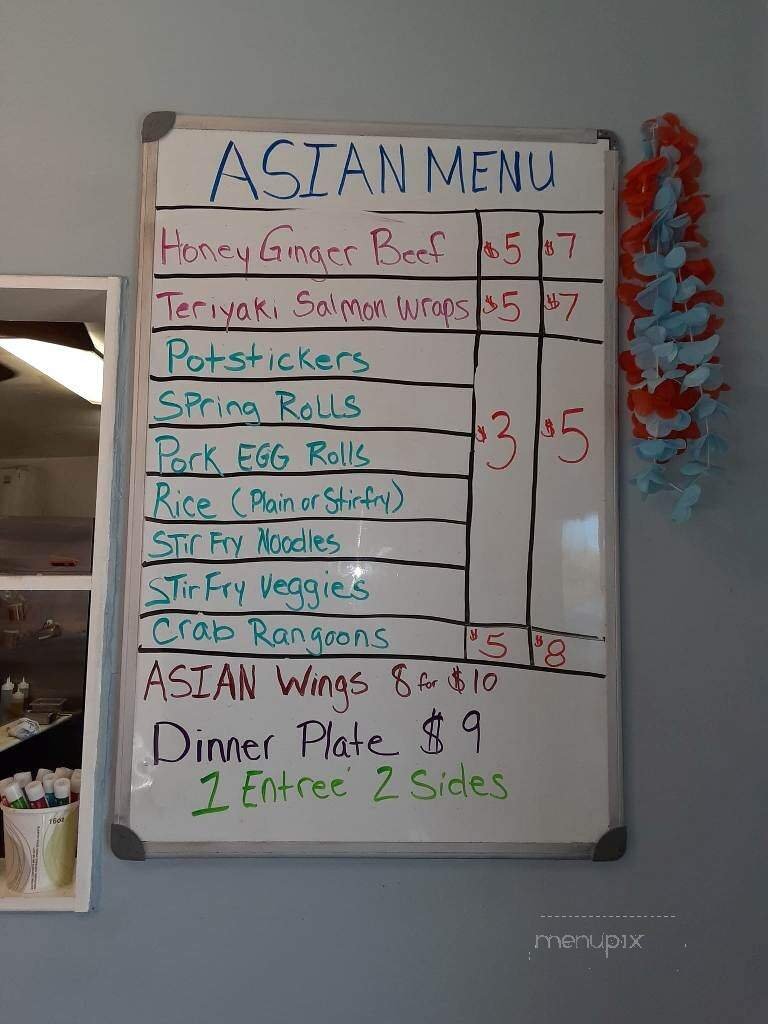 ASIAN MENU
Honey Ginger Beef $5 $7
Teriyaki Salmon Wraps $5 $7
Potstickers
Spring Rolls
Pork EGG Rolls $3 $5
Rice (Plain or Stirfry)
STir Fry Noodles
STir Fry Veggies
Crab Rangoons $5 $8
ASIAN Wings 8 for $10
Dinner Plate $9
1 Entreé 2 Sides
16oz
menupix